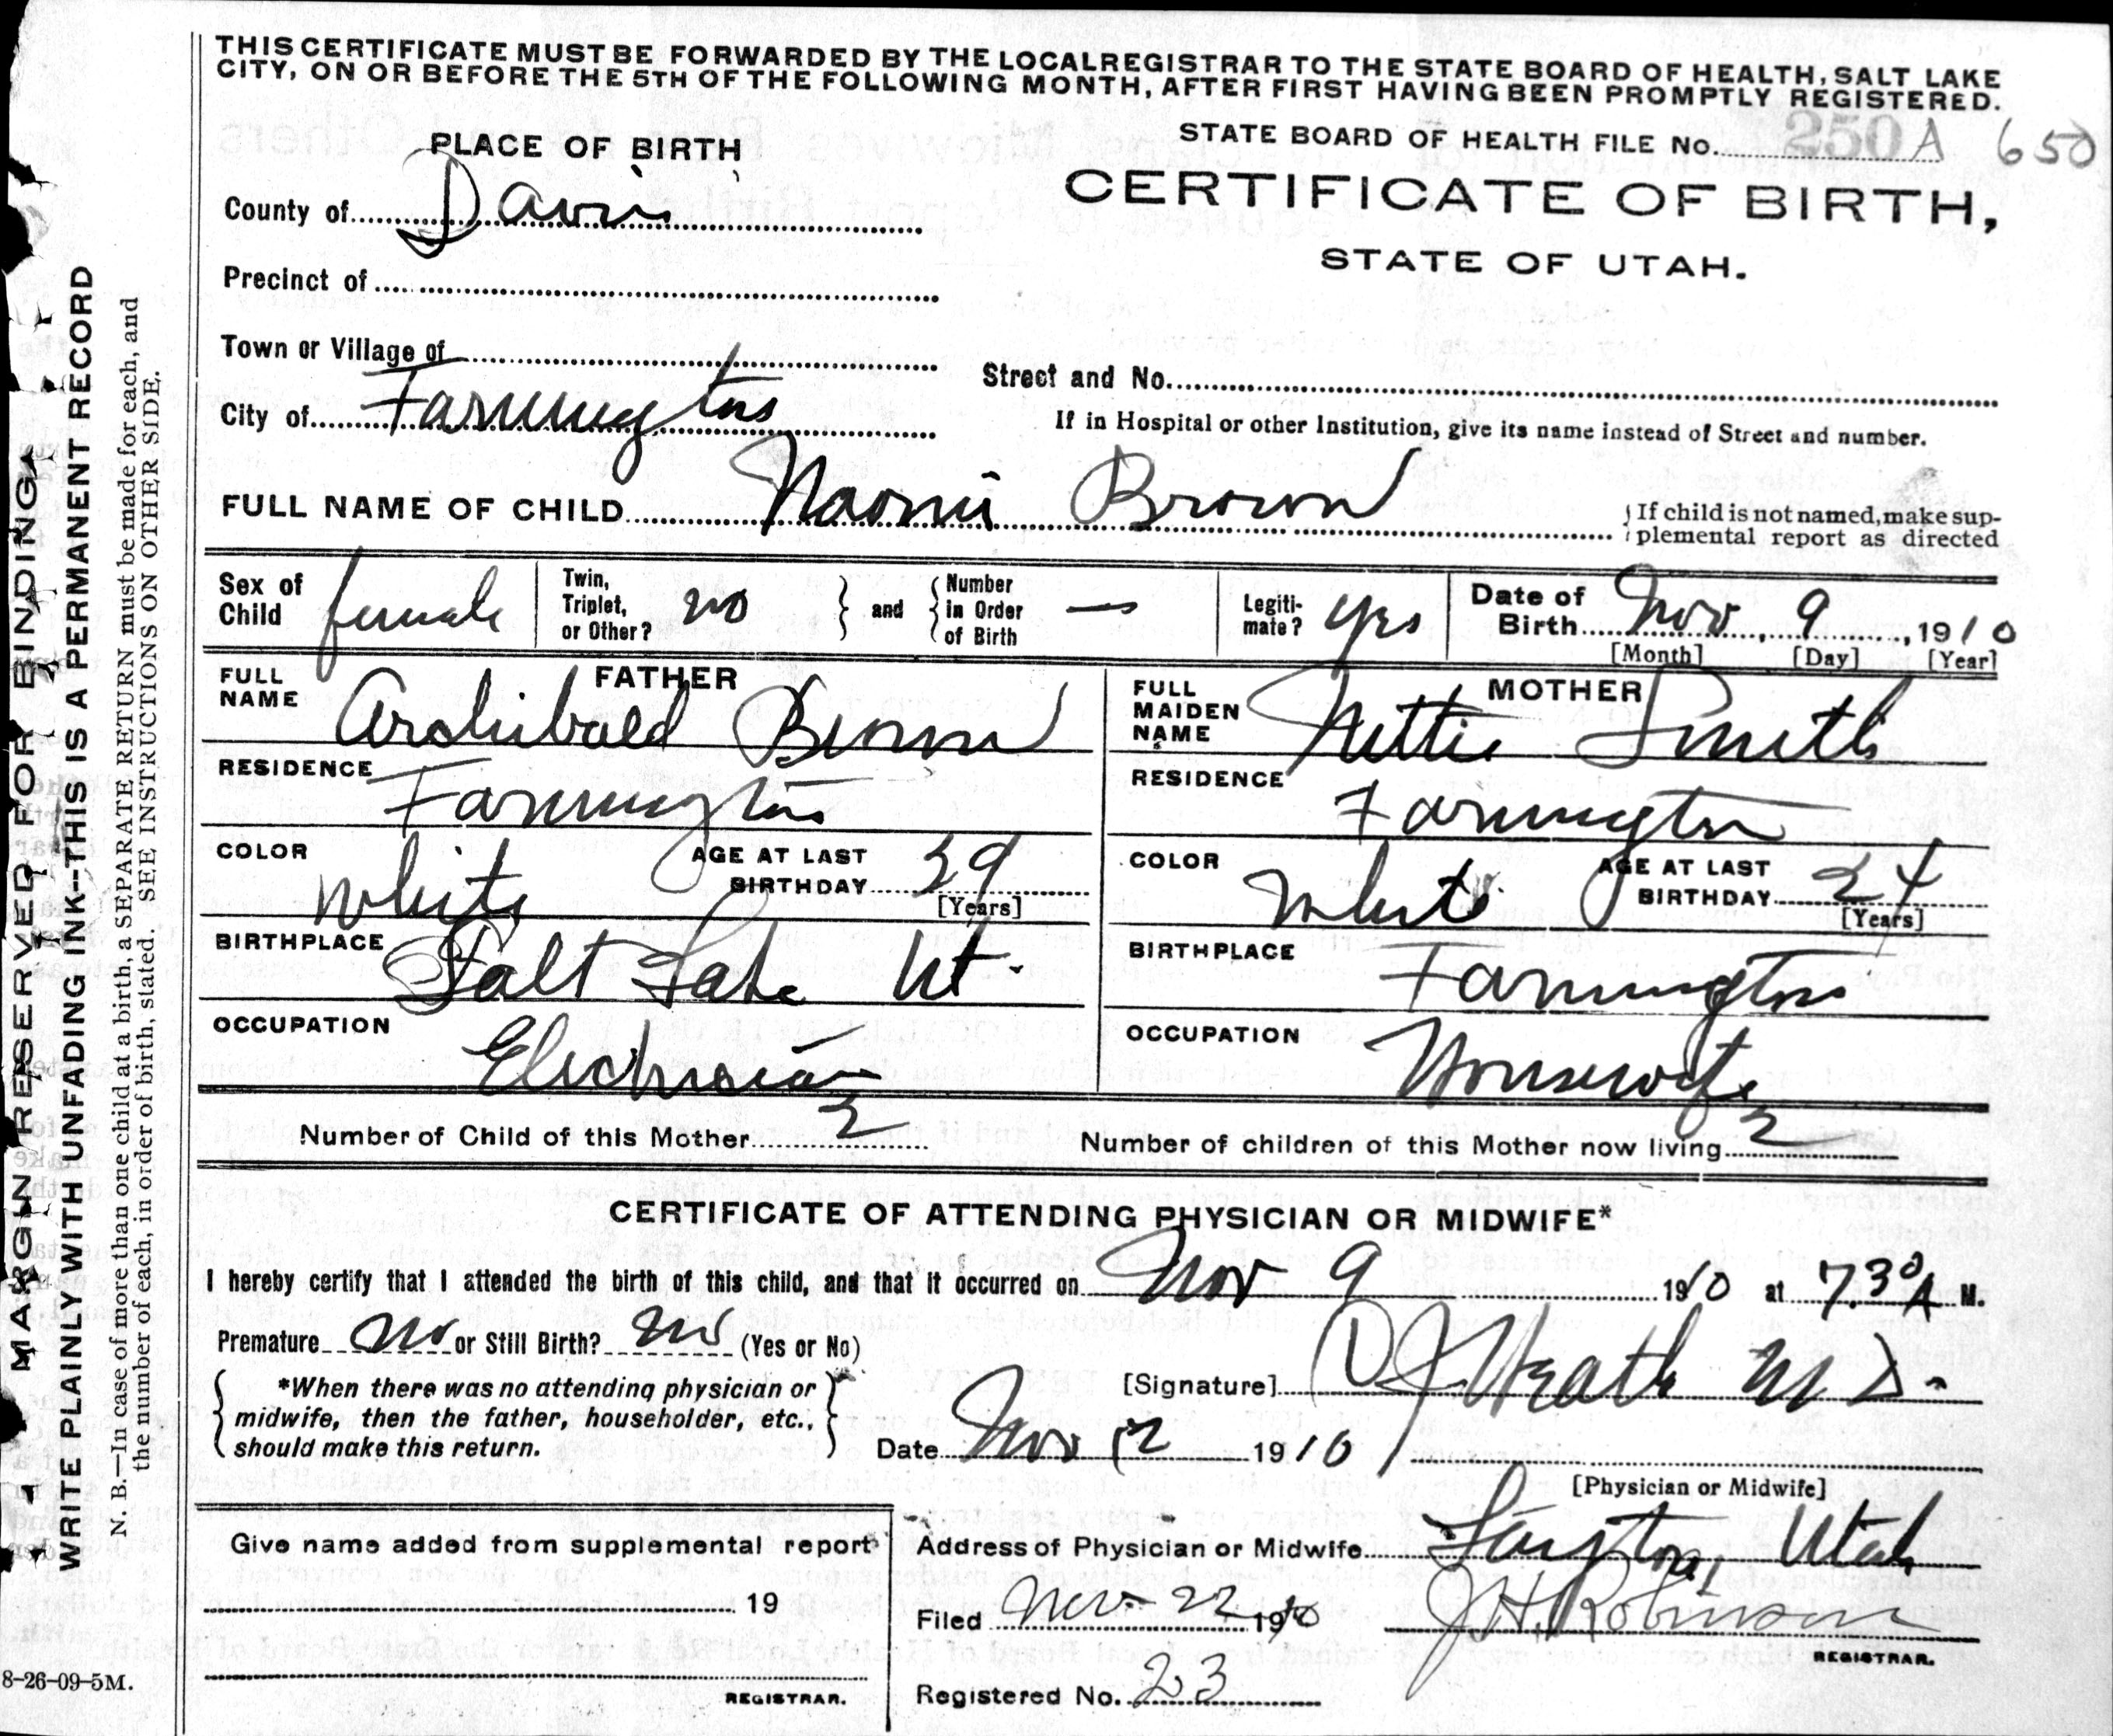 THIS CERTIFICATE MUST BE FORWARDED BY THE LOCAL REGISTRAR TO THE STATE BOARD OF HEALTH, SALT LAKE
CITY, ON OR BEFORE THE 5TH OF THE FOLLOWING MONTH, AFTER FIRST HAVING BEEN PROMPTLY REGISTERED.
STATE BOARD OF HEALTH FILE No. 250 A 650
PLACE OF BIRTH
CERTIFICATE OF BIRTH,
STATE OF UTAH.
County of Davis
Precinct of
Town or Village of
Street and No.
City of Farmington
If in Hospital or other Institution, give its name instead of Street and number.
FULL NAME OF CHILD Naomi Brown
If child is not named, make sup-
plemental report as directed
Sex of Child female
Twin, Triplet, or Other? no
and Number in Order of Birth —
Legiti-mate? yes
Date of Birth Nov 9, 1910
[Month] [Day] [Year]
FATHER
FULL NAME Archibald Brown
RESIDENCE Farmington
COLOR White AGE AT LAST BIRTHDAY 39
[Years]
BIRTHPLACE Salt Lake Ut.
OCCUPATION Electrician
MOTHER
FULL MAIDEN NAME Nettie Smith
RESIDENCE Farmington
COLOR White AGE AT LAST BIRTHDAY 34
[Years]
BIRTHPLACE Farmington
OCCUPATION Housewife
Number of Child of this Mother 2
Number of children of this Mother now living 2
CERTIFICATE OF ATTENDING PHYSICIAN OR MIDWIFE*
I hereby certify that I attended the birth of this child, and that it occurred on Nov 9 1910 at 7.30 A M.
Premature No or Still Birth? No (Yes or No)
*When there was no attending physician or
midwife, then the father, householder, etc.,
should make this return.
[Signature] Heath M D.
Date Nov 12 1910
[Physician or Midwife]
Give name added from supplemental report
19
REGISTRAR.
Address of Physician or Midwife Layton, Utah
Filed Nov. 22 1910 J. H. Robinson
REGISTRAR.
Registered No. 23
MARGIN RESERVED FOR BINDING
WRITE PLAINLY WITH UNFADING INK--THIS IS A PERMANENT RECORD
N. B.—In case of more than one child at a birth, a SEPARATE RETURN must be made for each, and
the number of each, in order of birth, stated. SEE INSTRUCTIONS ON OTHER SIDE.
8-26-09-5M.